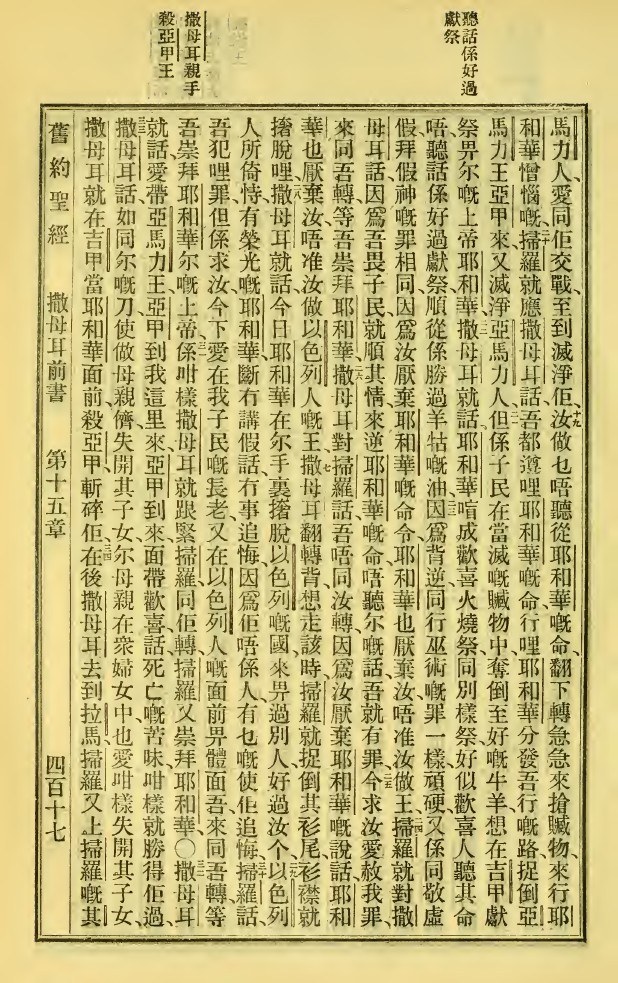 聽話係好過
獻祭
撒母耳親手
殺亞甲王
馬力人、愛同佢交戰、至到滅淨佢、十九汝做乜唔聽從耶和華嘅命、翻下轉急急來搶贓物、來行耶
和華憎惱嘅、二十掃羅就應撒母耳話、吾都遵哩耶和華嘅命、行哩耶和華分發吾行嘅路、捉倒亞
馬力王亞甲來、又滅淨亞馬力人、二一但係子民在當滅嘅贓物中、奪倒至好嘅牛羊、想在吉甲獻
祭畀尔嘅上帝耶和華、二二撒母耳就話、耶和華㗂成歡喜火燒祭、同別樣祭、好似歡喜人聽其命
唔、聽話係好過獻祭、順從係勝過羊牯嘅油、二三因爲背逆同行巫術嘅罪一樣、頑硬又係同敬虛
假拜假神嘅罪相同、因爲汝厭棄耶和華嘅命令、耶和華也厭棄汝、唔准汝做王、二四掃羅就對撒
母耳話、因爲吾畏子民、就順其情來逆耶和華嘅命、唔聽尔嘅話、吾就有罪、二五今求汝愛赦我罪、
來同吾轉、等吾崇拜耶和華、二六撒母耳對掃羅話、吾唔同汝轉、因爲汝厭棄耶和華嘅說話、耶和
華也厭棄汝、唔准汝做以色列人嘅王、二七撒母耳翻轉背想走、該時掃羅就捉倒其衫尾、衫襟就
撦脫哩、二八撒母耳就話、今日耶和華在尔手裏撦脫以色列嘅國、來畀過別人好過汝个、二九以色列
人所倚恃有榮光嘅耶和華、斷冇講假話、冇事追悔、因爲佢唔係人、有乜嘅使佢追悔、三十掃羅話、
吾犯哩罪、但係求汝今下愛在我子民嘅長老、又在以色列人嘅面前、畀體面吾、來同吾轉、等
吾崇拜耶和華尔嘅上帝、三一係咁樣撒母耳就跟緊掃羅同佢轉、掃羅又崇拜耶和華、〇三二撒母耳
就話、愛帶亞馬力王亞甲到我這里來、亞甲到來、面帶歡喜話、死亡嘅苦味咁樣就勝得佢過、
三三撒母耳話、如同尔嘅刀、使做母親儕失開其子女、尔母親在衆婦女中也愛咁樣失開其子女、
撒母耳就在吉甲當耶和華面前、殺亞甲斬碎佢、三四在後撒母耳去到拉馬、掃羅又上掃羅嘅其
舊約聖經 撒母耳前書 第十五章 四百十七